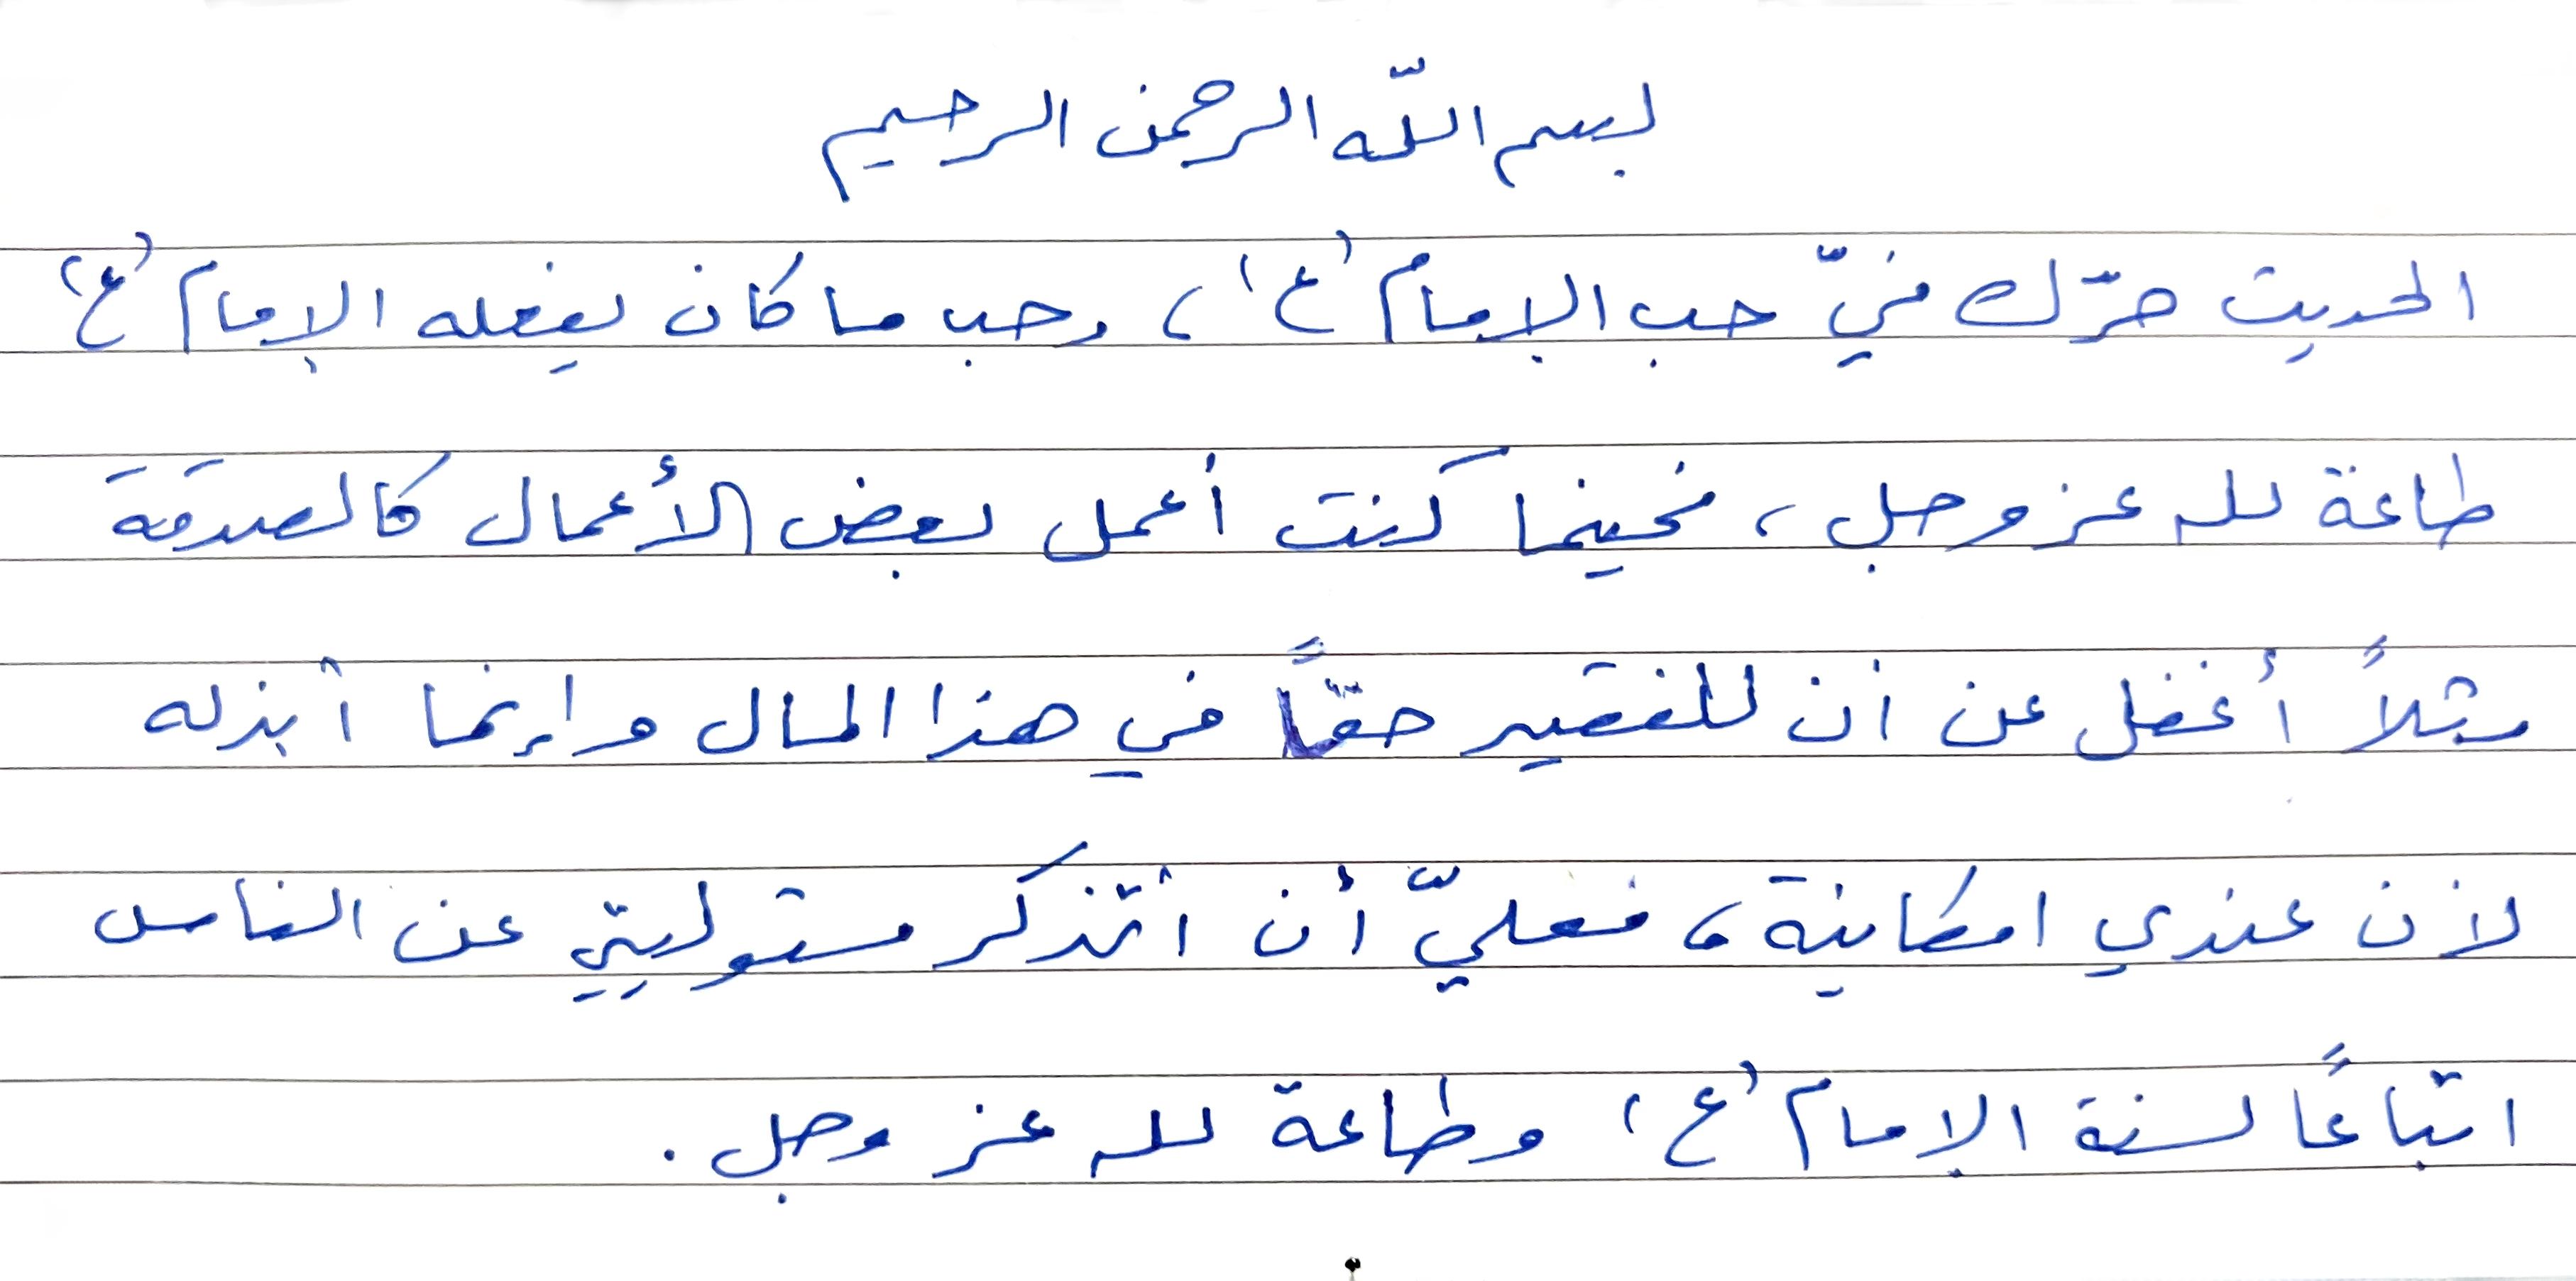 بسم اللّه الرحمن الرحيم
الحديث حرّك فيّ حب الإمام (ع)، وحب ما كان يفعله الإمام (ع)
طاعة لله عز وجل، فحينما كنت أعمل بعض الأعمال كالصدقة
مثلاً أغفل عن أن للفقير حقاً في هذا المال وإنما أبذله
لأن عندي امكانية، فعليّ أن أتذكر مسئوليتي عن الناس
اتباعاً لسنة الإمام (ع) وطاعة لله عز وجل.